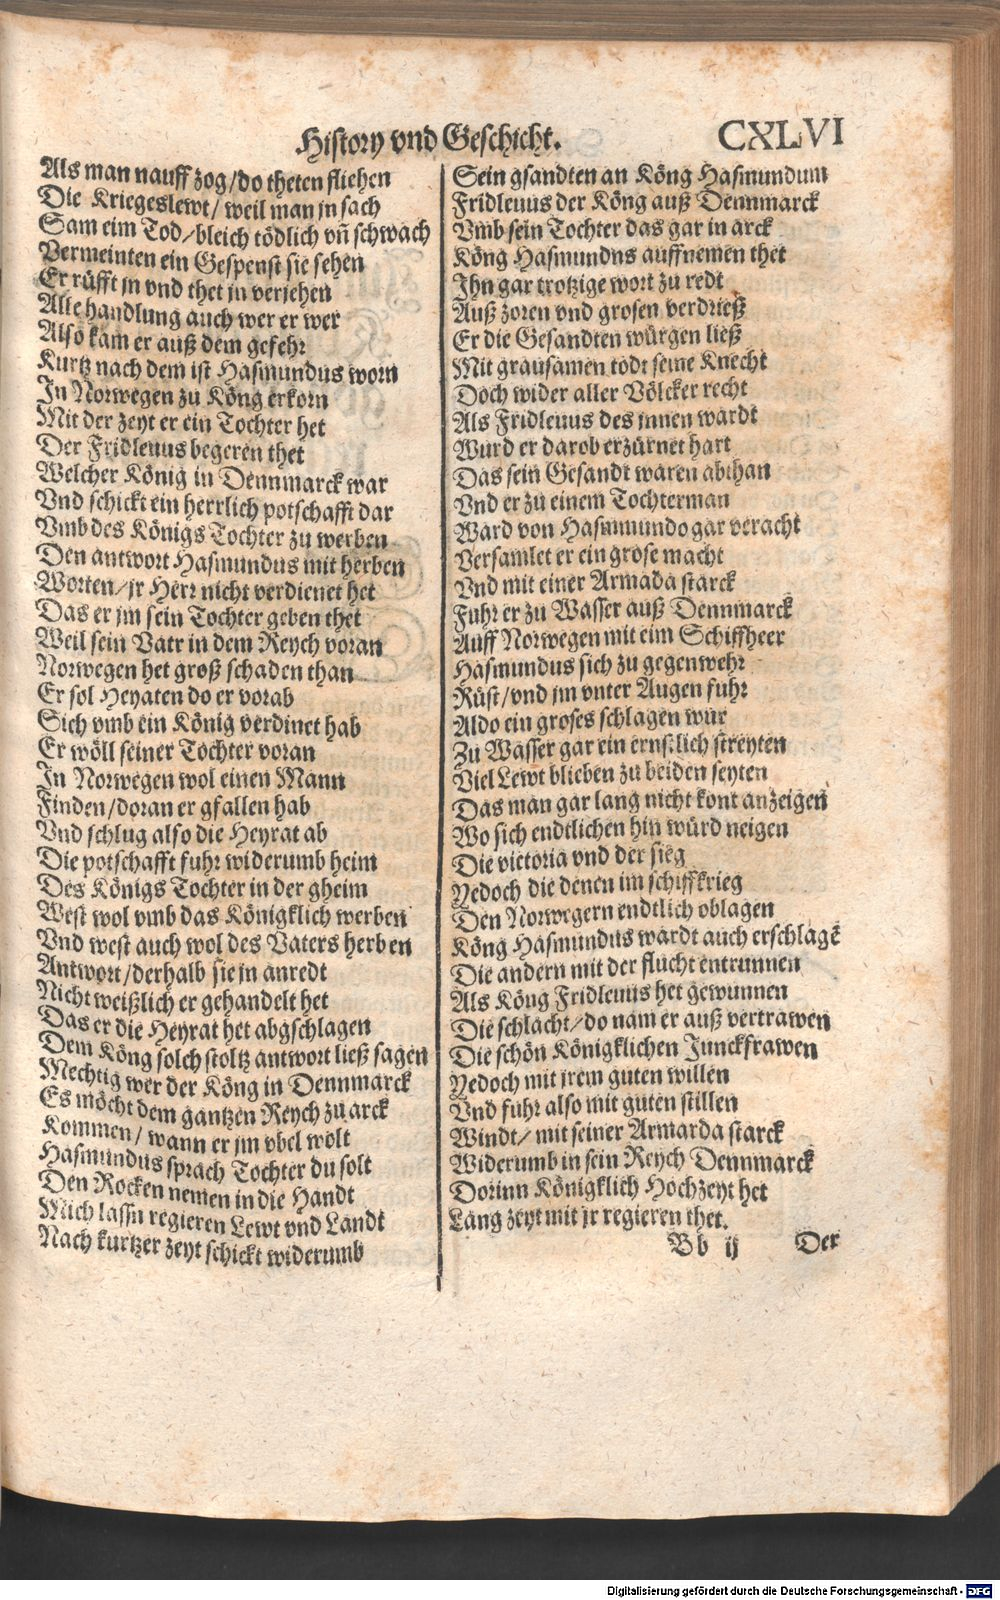 History vnd Geschicht.
CXLVI
Als man nauff zog/do theten fliehen
Die Kriegeslewt/ weil man jn sach
Sam eim Tod/bleich tödlich vñ schwach
Vermeinten ein Gespenst sie sehen
Er rüfft jn vnd thet jn verjehen
Alle handlung auch wer er wer
Also kam er auß dem gefehr
Kurtz nach dem ist Hasmundus worn
In Norwegen zu Köng erkorn
Mit der zeyt er ein Tochter het
Der Fridleuus begeren thet
Welcher König in Dennmarck war
Vnd schickt ein herrlich potschafft dar
Vmb des Königs Tochter zu werben
Den antwort Hasmundus mit herben
Worten/jr Herr nicht verdienet het
Das er jm sein Tochter geben thet
Weil sein Vatr in dem Reych voran
Norwegen het groß schaden than
Er sol Heyaten do er vorab
Sich vmb ein König verdinet hab
Er wöll seiner Tochter voran
In Norwegen wol einen Mann
Finden/doran er gfallen hab
Vnd schlug also die Heyrat ab
Die potschafft fuhr widerumb heim
Des Königs Tochter in der gheim
West wol vmb das Königklich werben
Vnd west auch wol des Vaters herben
Antwort/derhalb sie jn anredt
Nicht weißlich er gehandelt het
Das er die Heyrat het abgschlagen
Dem Köng solch stoltz antwort ließ sagen
Mechtig wer der Köng in Dennmarck
Es möcht dem gantzen Reych zu arck
Kommen/ wann er jm vbel wolt
Hasmundus sprach Tochter du solt
Den Rocken nemen in die Handt
Mich lassn regieren Lewt vnd Landt
Nach kurtzer zeyt schickt widerumb
Sein gsandten an Köng Hasmundum
Fridleuus der Köng auß Dennmarck
Vmb sein Tochter das gar in arck
Köng Hasmundus auffnemen thet
Ihn gar trotzige wort zu redt
Auß zoren vnd grosen verdrieß
Er die Gesandten würgen ließ
Mit grausamen todt seine Knecht
Doch wider aller Völcker recht
Als Fridleuus des jnnen wardt
Wurd er darob erzürnet hart
Das sein Gesandt waren abthan
Vnd er zu einem Tochterman
Ward von Hasmmundo gar veracht
Versamlet er ein grose macht
Vnd mit einer Armada starck
Fuhr er zu Wasser auß Dennmarck
Auff Norwegen mit eim Schiffheer
Hasmundus sich zu gegenwehr
Rüst/vnd jm vnter Augen fuhr
Aldo ein groses schlagen wur
Zu Wasser gar ein ernstlich streyten
Viel Lewt blieben zu beiden seyten
Das man gar lang nicht kont anzeigen
Wo sich endtlichen hin würd neigen
Die victoria vnd der sieg
Yedoch die denen im schiffkrieg
Den Norwegern endtlich oblagen
Köng Hasmundus wardt auch erschlagẽ
Die andern mit der flucht entrunnen
Als Köng Fridleuus het gewunnen
Die schlacht/do nam er auß vertrawen
Die schön Königklichen Junckfrawen
Yedoch mit jrem guten willen
Vnd fuhr also mit guten stillen
Windt/ mit seiner Armarda starck
Widerumb in sein Reych Dennmarck
Dorinn Königklich Hochzeyt het
Lang zeyt mit jr regieren thet.
Bb ij
Der
Digitalisierung gefördert durch die Deutsche Forschungsgemeinschaft - DFG